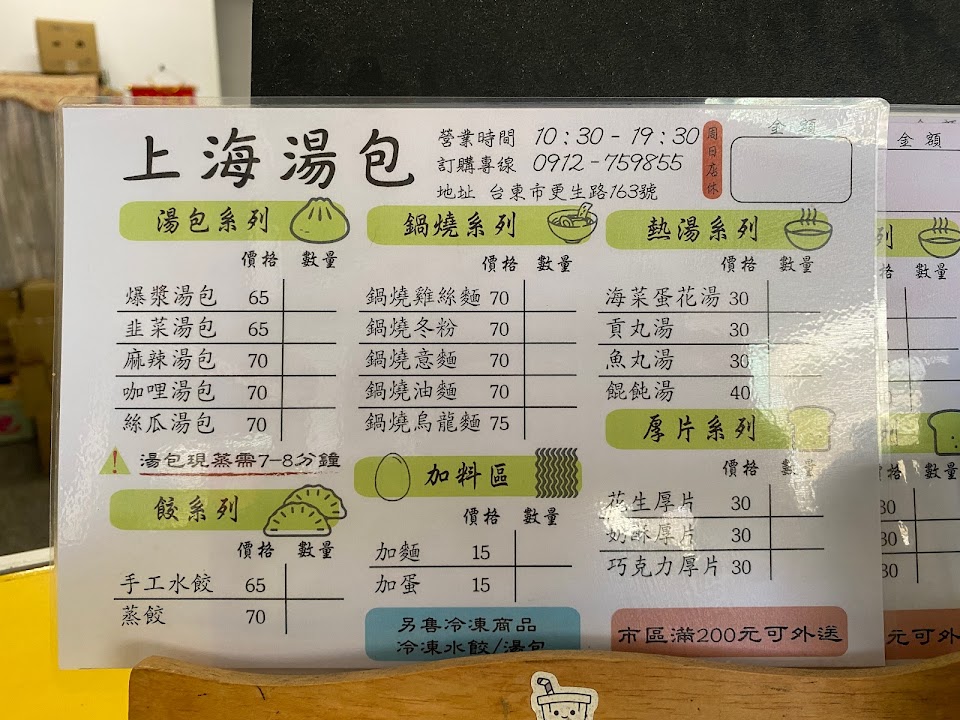 上海湯包
營業時間 10:30-19:30
訂購專線 0912-759855
地址 台東市更生路163號
周日店休
金額
湯包系列
價格 數量
爆漿湯包 65
韭菜湯包 65
麻辣湯包 70
咖哩湯包 70
絲瓜湯包 70
! 湯包現蒸需7-8分鐘
餃系列
價格 數量
手工水餃 65
蒸餃 70
鍋燒系列
價格 數量
鍋燒雞絲麵 70
鍋燒冬粉 70
鍋燒意麵 70
鍋燒油麵 70
鍋燒烏龍麵 75
加料區
價格 數量
加麵 15
加蛋 15
另售冷凍商品
冷凍水餃/湯包
熱湯系列
價格 數量
海菜蛋花湯 30
貢丸湯 30
魚丸湯 30
餛飩湯 40
厚片系列
價格 數量
花生厚片 30
奶酥厚片 30
巧克力厚片 30
市區滿200元可外送
金額
列
價格 數量
價格 數量
30
30
30
元可外